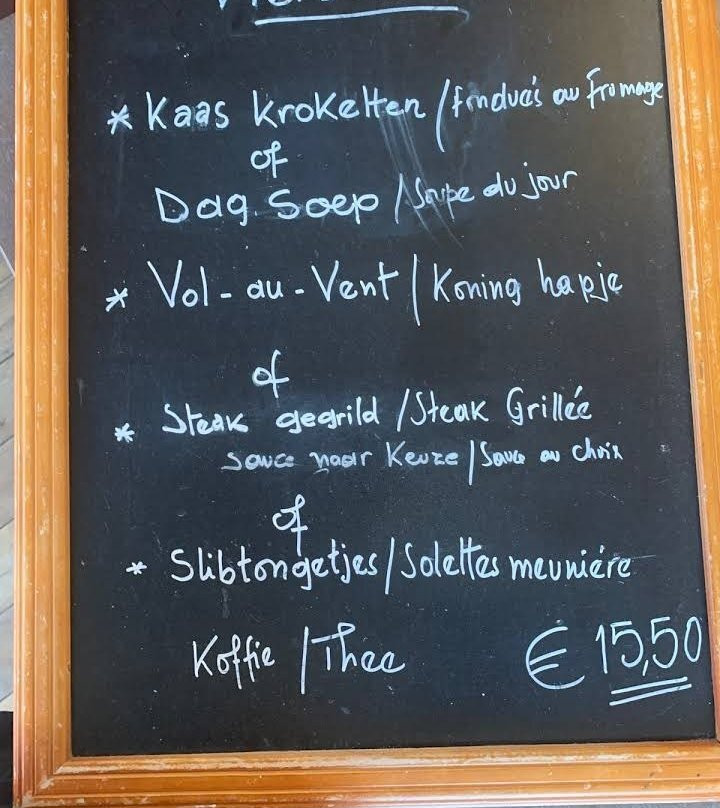 * Kaas Kroketten / fondués au fromage
of
Dag Soep / Soupe du jour
* Vol-au-Vent / Koning hapje
of
* Steak gegrild / Steak Grillée
Sauce naar Keuze / Sauce au choix
of
* Slibtongetjes / Solettes meuniére
Koffie / Thee € 15,50